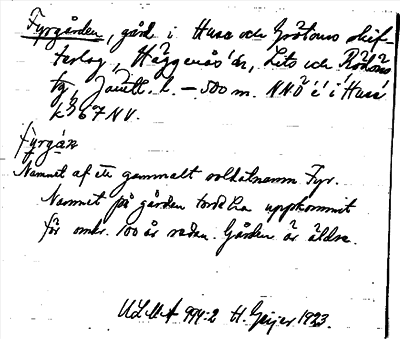 Fyrgården, gård i Husa och Grötoms skif-
teslag, Häggenås sn, Lits och Rödöns
tg, Jämtl. l. — 500 m. NNÖ i Huså
k 67 NV.
fyrgán
Namnet af ett gammalt soldatnamn Fyr.
Namnet på gården torde ha uppkommit
för omkr. 100 år sedan. Gården är äldre.
ULMA 994:2 H. Geijer 1923.